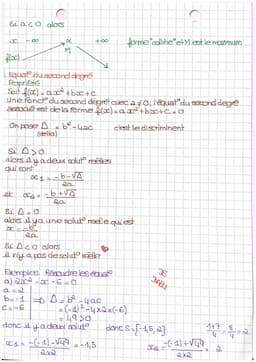 Si a < 0 alors
x -∞ α +∞ forme "colline" et M est le maximum
f(x) M
Equat° du second degré
Propriété
Soit f(x) = ax² + bx + c
une fonct° du second degré avec a ≠ 0, l'équat° du second degré
associé est de la forme f(x) = ax² + bx + c = 0
On pose Δ = b² - 4ac c'est le discriminent
(delta)
Si Δ > 0
alors il y a deux solut° réelles
qui sont
x₁ = -b-√Δ / 2a
et x₂ = -b+√Δ / 2a
Si Δ = 0
alors il y a une solut° réelle qui est
x = -b / 2a
Si Δ < 0 alors
il n'y a pas de solut° réelle
Exemples Résoudre les équat°
a) 2x² - x - 6 = 0
a = 2
b = -1 ⇒ Δ = b² - 4ac
c = -6 = (-1)² - 4×2×(-6)
= 49 > 0
donc il y a deux solut° donc S = {-1,5, 2} 1+7 / 4 = 8 / 4 = 2
x₁ = -(-1)-√49 / 2×2 = -1,5 x₂ = -(-1)+√49 / 2×2 = 2